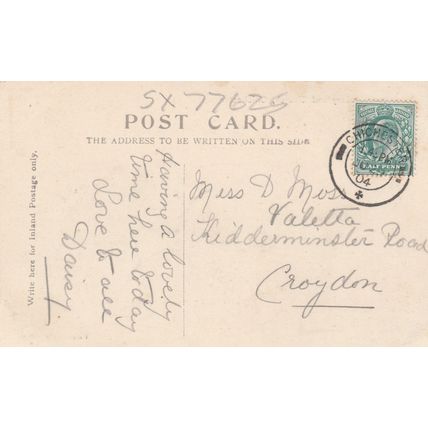 SX 77626
POST CARD.
THE ADDRESS TO BE WRITTEN ON THIS SIDE
Write here for Inland Postage only.
Having a lovely
time here today
Love to all
Daisy
Miss D Moss
Valetta
Kidderminster Road
Croydon
CHICHESTER
04
HALF PENNY